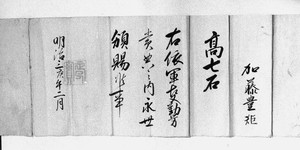 加藤豊矩
高七石
右依軍務勤労
賞典之内永世
頒賜候事
明治三庚午年二月